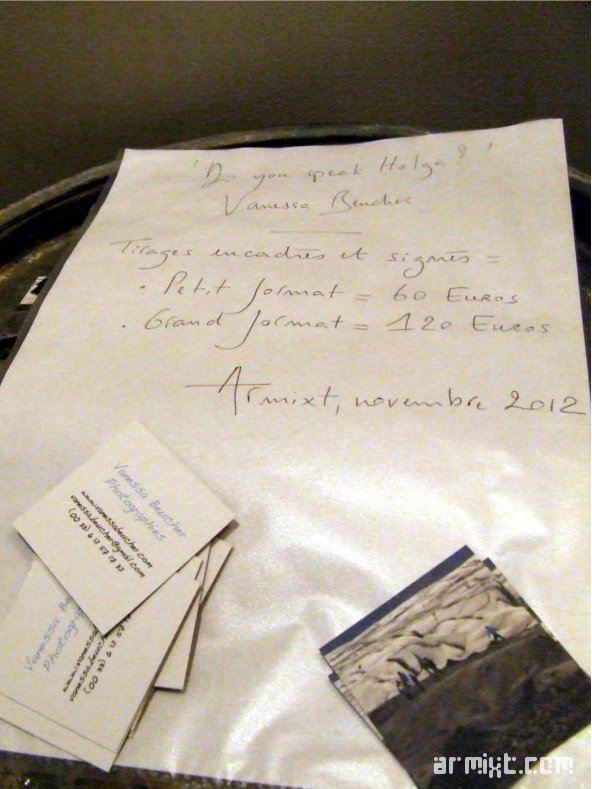 'Do you speak Holga?'
Vanessa Beucher
Tirages encadrés et signés =
• Petit format = 60 Euros
• Grand format = 120 Euros
Armixt, novembre 2012
Vanessa Beucher
Photographies
www.vanessabeucher.com
vanessabeucher@gmail.com
(00 33) 6 12 57 17 32
Vanessa Be
Photogra
www.vaness
vanessabeuc
(00 33) 6 12 57
armixt.com